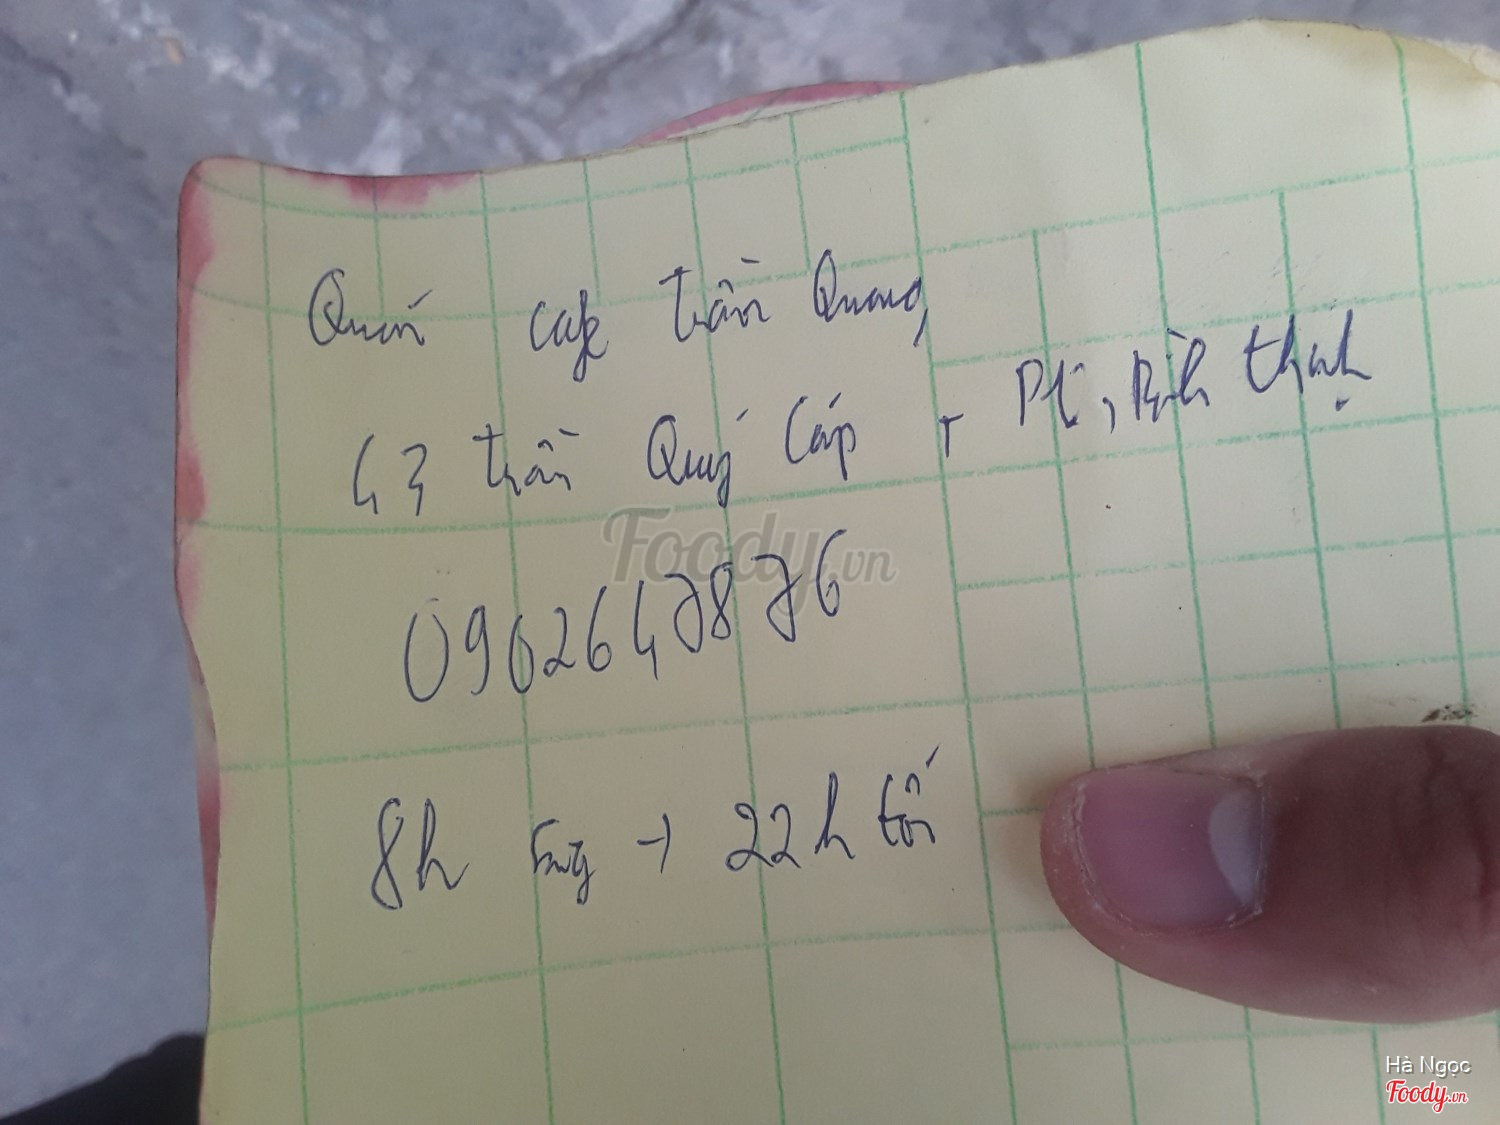 Quán cafe Trần Quang
43 Trần Quý Cáp - P11, Bình Thạnh
0902647876
8h sáng → 22h tối
Foody.vn
Hà Ngọc
Foody.vn